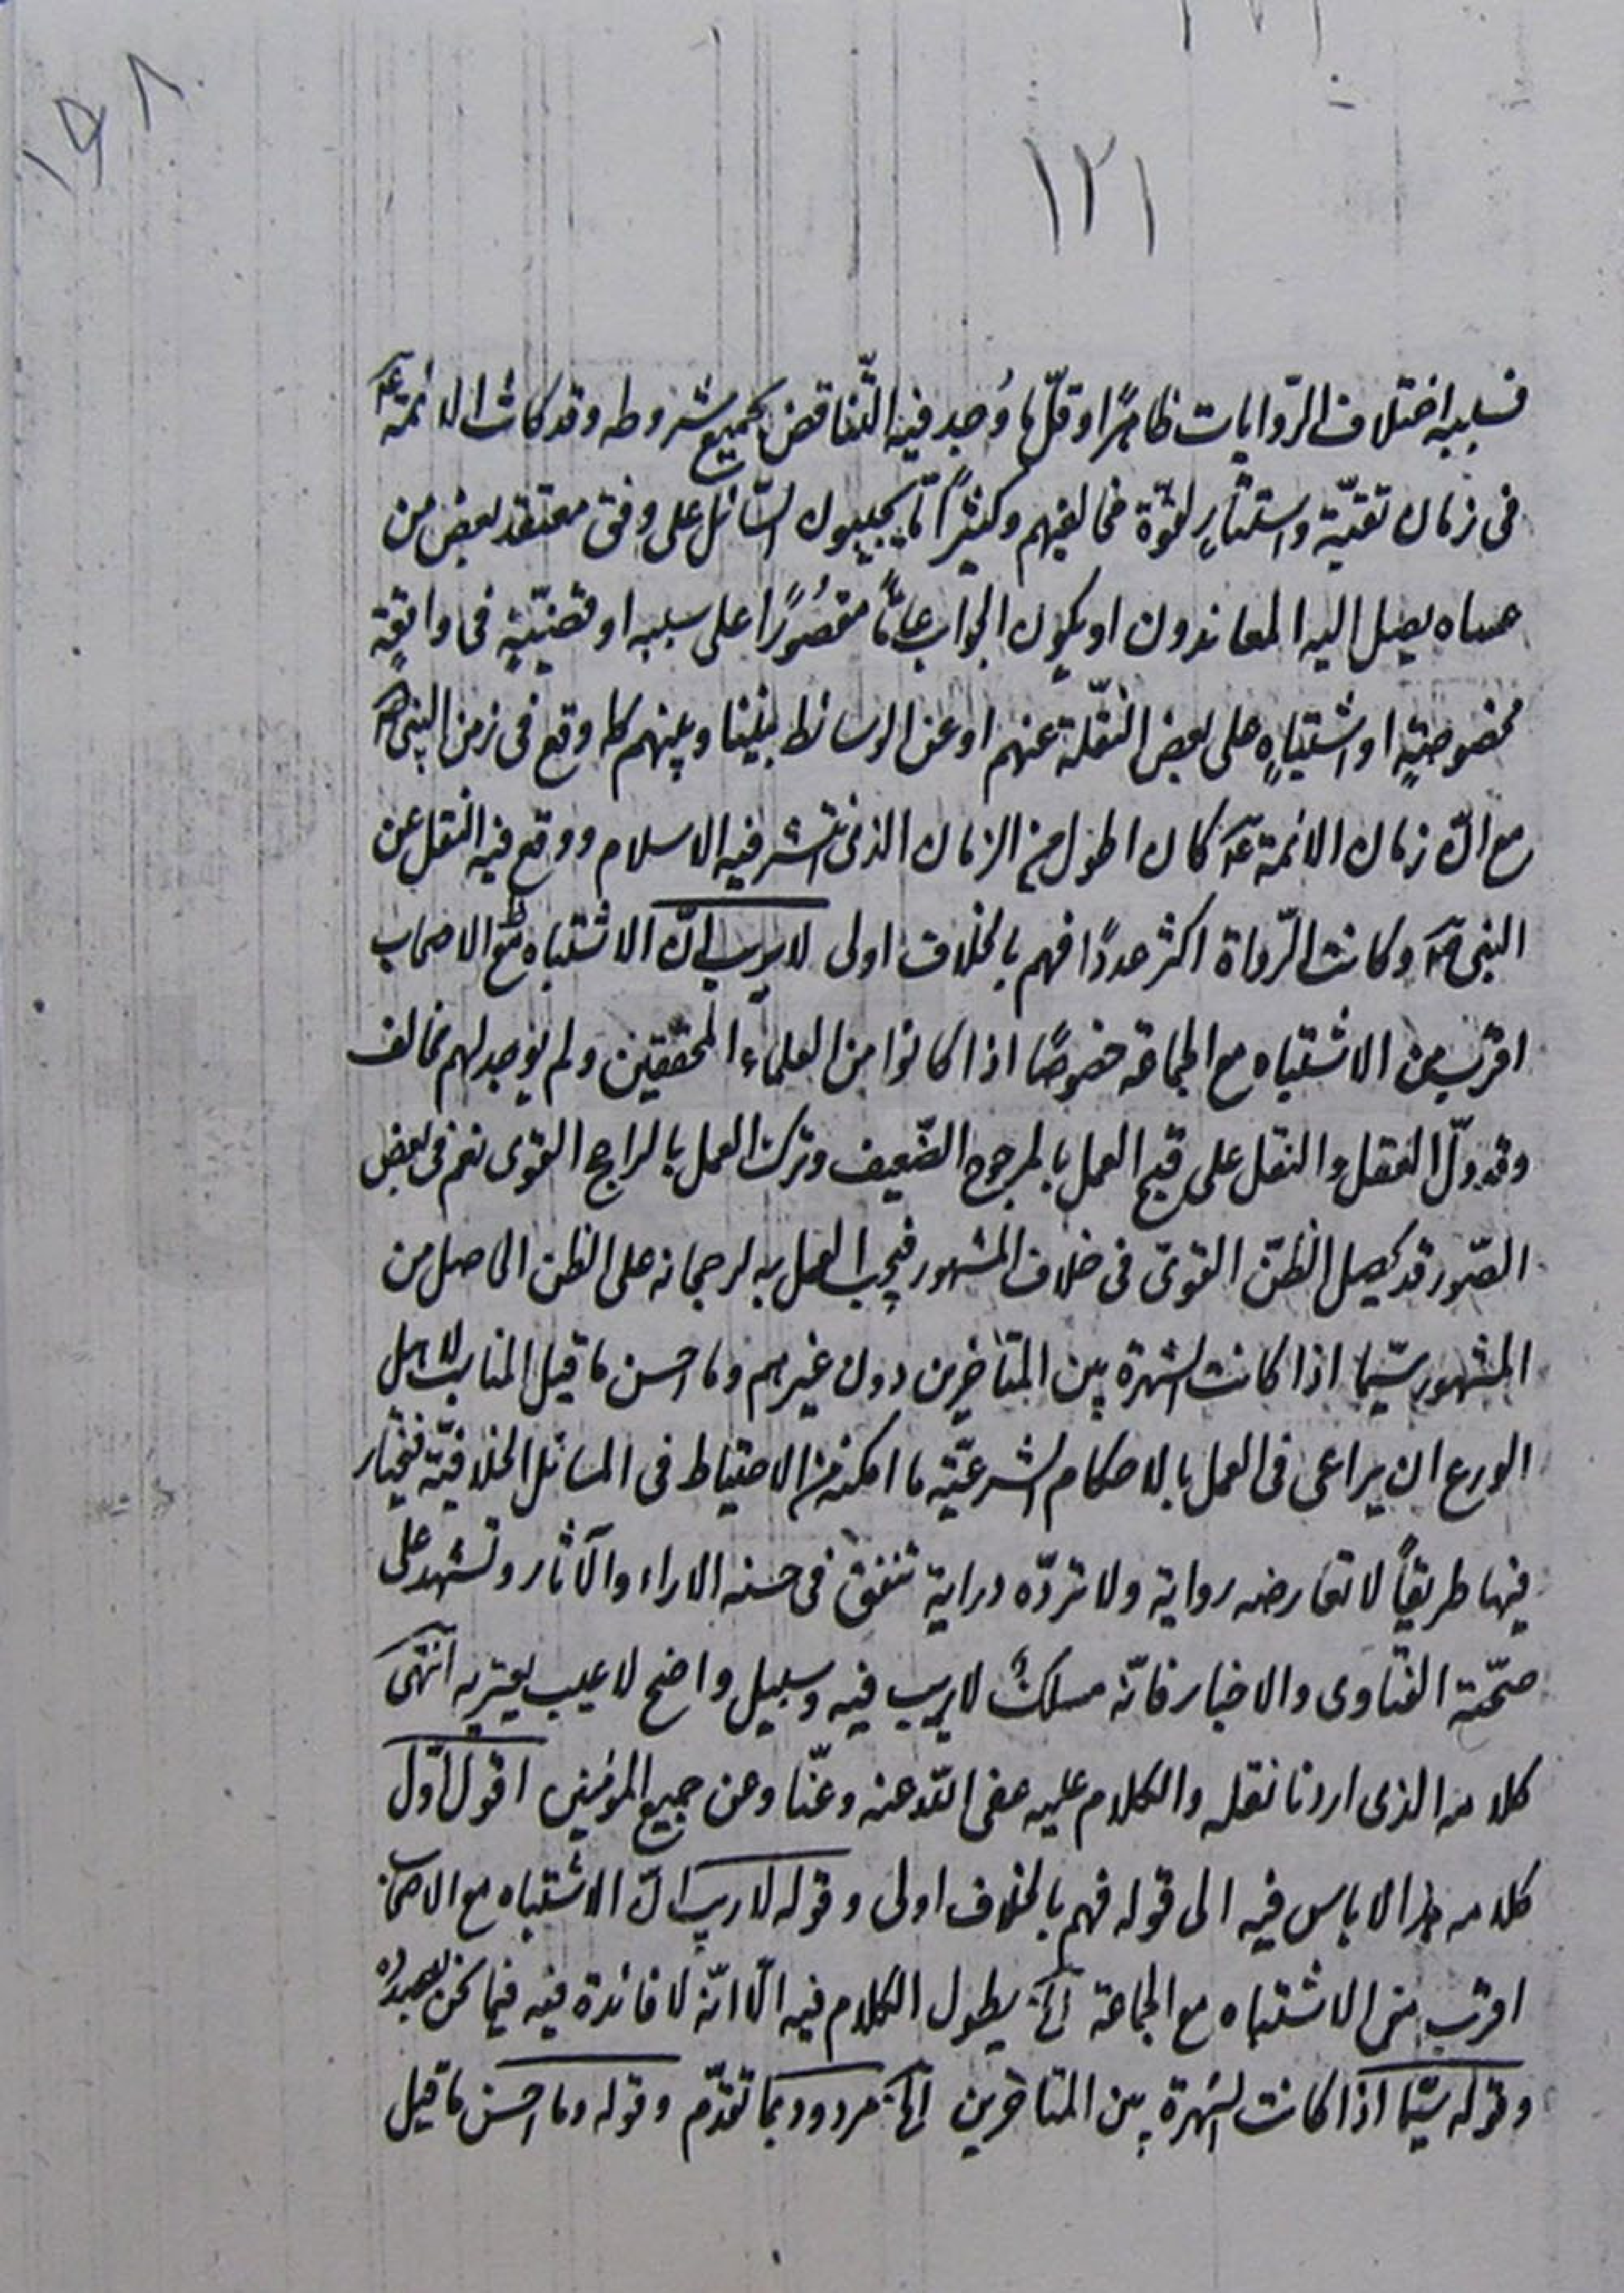 ١٢١
فسببه اختلاف الرّوايات ظاهرًا وقلّ ما وُجد فيه التّناقض بجميع شروطه وقد كانت الائمة ع
فى زمان تقيّة واستتارٍ لقوّة مخالفيهم وكثيرًا ما يجيبون السّائل على وفق معتقد بعض من
عساه يصل اليه المعاندون او يكون الجواب عامًّا مقصُورًا على سببه او قضيّةٍ فى واقعةٍ
مخصوصةٍ او اشتباهٍ على بعض النّقلة عنهم او عن الوسائط بيننا وبينهم كما وقع فى زمن النبى ص
مع انّ زمان الائمة ع كان اطول من الزمان الذى انتشر فيه الاسلام ووقع فيه النقل عن
النبى ص وكانت الرّواة اكثر عددًا فهم بالخلاف اولى لا ريب انّ الاشتباه مع الاصحاب
اقرب من الاشتباه مع الجماعة خصوصًا اذا كانوا من العلماء المحققين ولم يوجد لهم مخالف
وقد دلّ العقل والنقل على قبح العمل بالمرجوح الضّعيف وترك العمل بالراجح القوى نعم فى بعض
الصّور قد يحصل الظنّ القوىّ فى خلاف المشهور فيجب العمل به لرجحانه على الظن الحاصل من
المشهور سيّما اذا كانت الشهرة بين المتاخرين دون غيرهم وما احسن ما قيل المناسب لاهل
الورع ان يراعى فى العمل بالاحكام الشرعيّة ما امكنه من الاحتياط فى المسائل الخلافيّة فيختار
فيها طريقًا لا تعارضه رواية ولا تردّه دراية تتفق فى حسنه الاراء والآثار وتشهد على
صحّته الفتاوى والاخبار فانّه مسلكٌ لا ريب فيه وسبيل واضح لا عيب يعتريه انتهى
كلامه الذى اردنا نقله والكلام عليه عفى اللّه عنه وعنّا وعن جميع المؤمنين اقول اوّل
كلامه هذا لا باس فيه الى قوله فهم بالخلاف اولى وقوله لا ريب انّ الاشتباه مع الاصحاب
اقرب من الاشتباه مع الجماعة الخ يطول الكلام فيه الّا انّه لا فائدة فيه فيما نحن بصدده
وقوله سيّما اذا كانت الشهرة بين المتاخرين الخ مردود بما تقدّم وقوله وما احسن ما قيل